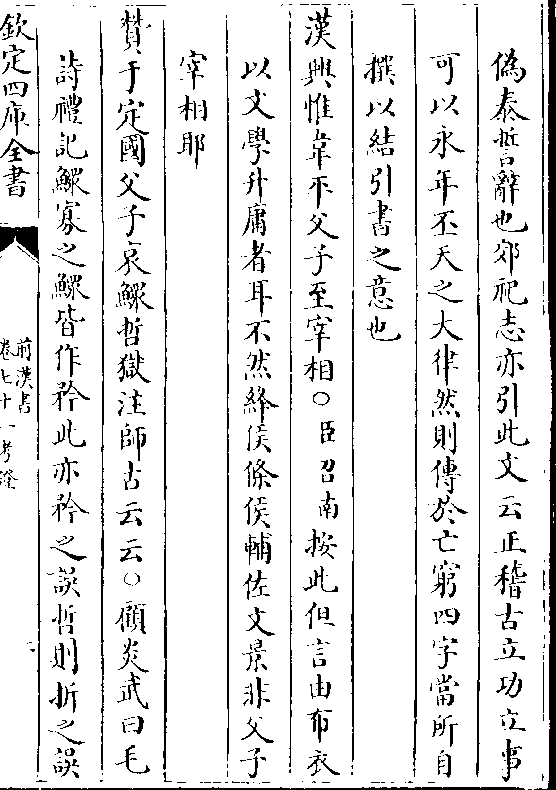 偽泰誓辭也郊祀志亦引此文云正稽古立功立事
可以永年丕天之大律然則傳於亡窮四字當所自
撰以結引書之意也
漢興惟韋平父子至宰相○臣召南按此但言由布衣
以文學升庸者耳不然絳侯條侯輔佐文景非父子
宰相耶
贊于定國父子哀鰥哲獄注師古云云○顧炎武曰毛
詩禮記鰥寡之鰥皆作矜此亦矜之誤哲則折之誤
欽定四庫全書
前漢書
卷七十一考證